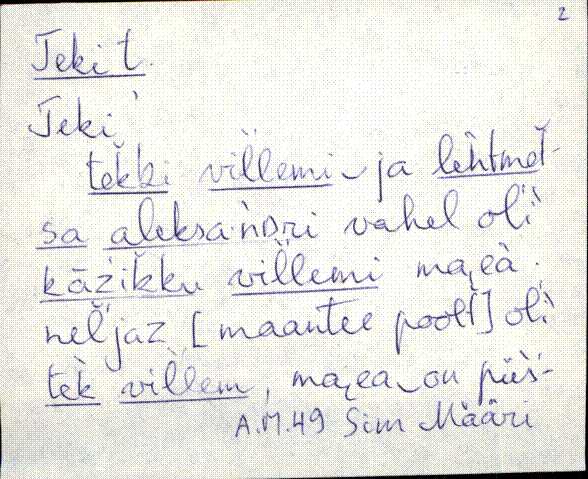 2
Teki t.
Teki
tek̆ki vil̆lemi ja lèhtmet̆-
sa aleksa·ǹᴅri vahel olì
kāzikku vil̆lemi maᵢeà.
nel̆jaz [maantee poolt] olì
tek̀ vil̆lem, maᵢea on püs̀-
A.M.49 Sim Määri